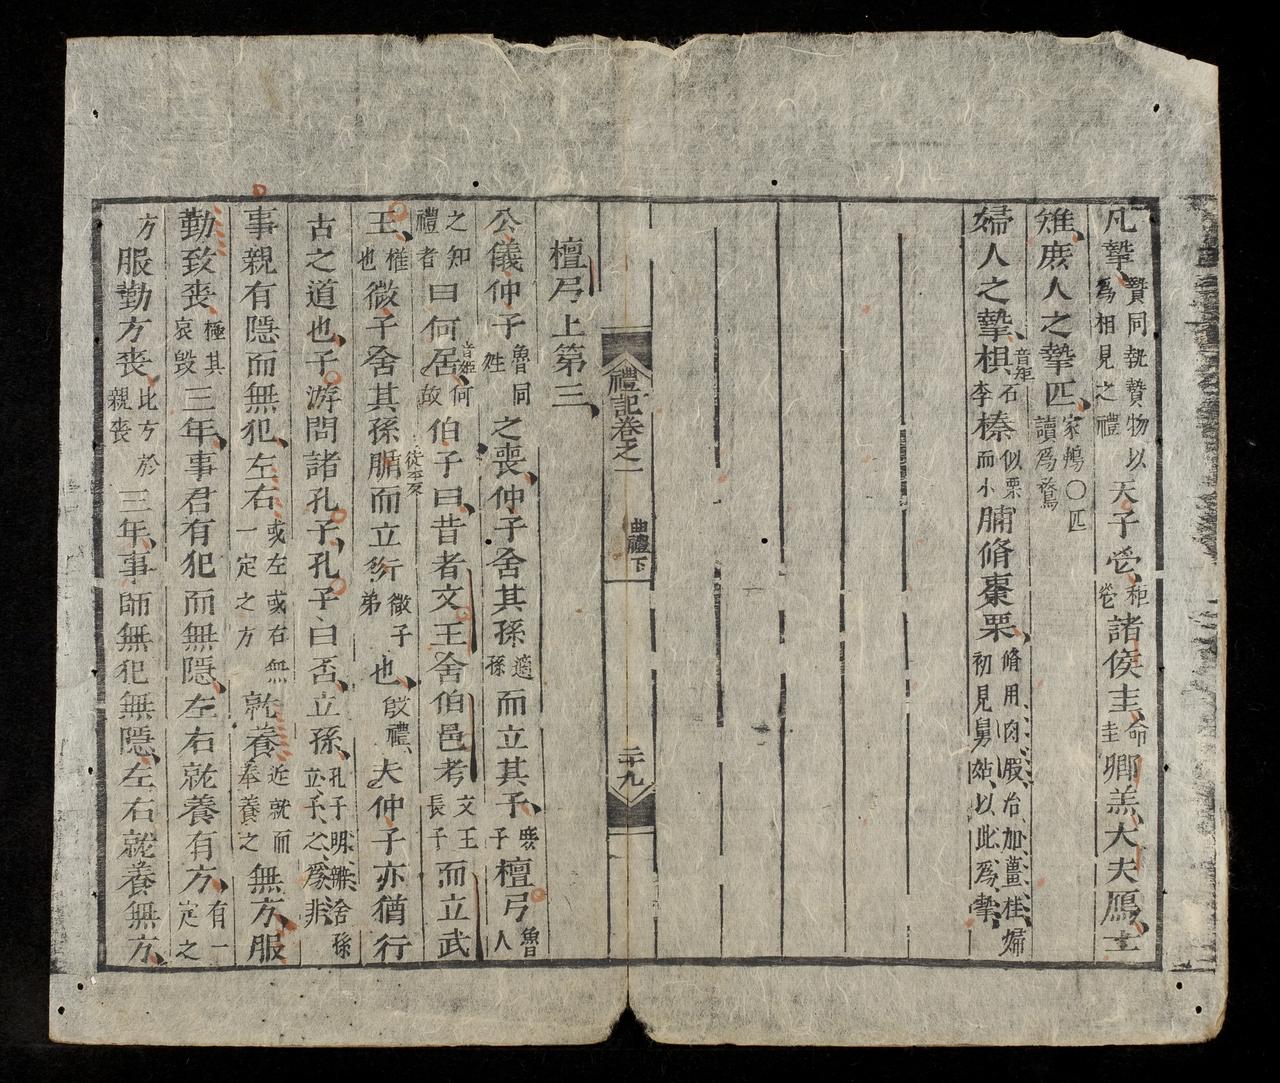 凡摯贄同執贄物以爲相見之禮天子鬯秬鬯諸侯圭命圭卿羔大夫鴈士
雉庶人之摯匹家〇匹讀爲鶩
婦人之摯椇音矩石李榛似栗而小脯脩棗栗脩用肉股治加薑桂婦初見舅姑以此爲摯
禮記卷之一 曲禮下 二十九
檀弓上第三
公儀仲子魯同姓之喪仲子舍其孫適孫而立其子庶子檀弓魯人
之知禮者曰何居音姬何故伯子曰昔者文王舍伯邑考文王長子而立武
王權也微子舍其孫腯徒本反而立衍微子弟也殷禮夫仲子亦猶行
古之道也子游問諸孔子孔子曰否立孫孔子明辨舍孫立子之爲非
事親有隱而無犯左右或左或右無一定之方就養近就而奉養之無方服
勤致喪極其哀毀三年事君有犯而無隱左右就養有方有一定之
方服勤方喪比方於親喪三年事師無犯無隱左右就養無方